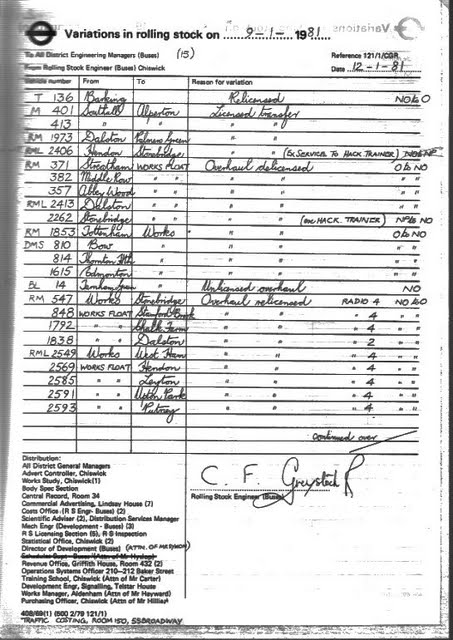 Variations in rolling stock on 9-1- 1981
To All District Engineering Managers (Buses) (15) Reference 121/1/CGR
From Rolling Stock Engineer (Buses) Chiswick Date 12-1-81
Vehicle number From To Reason for variation
T 136 Barking Relicensed NO to O
M 401 Southall Alperton Licensed transfer
413 " " " "
RM 1973 Dalston Palmers Green " "
RML 2406 Hendon Stonebridge " " (Ex SERVICE TO HACK TRAINER)
RM 371 Streatham WORKS FLOAT Overhaul delicensed O to NO
382 Middle Row " " " " " "
357 Abbey Wood " " " " " "
RML 2413 Dalston " " " " " "
2262 Stonebridge " " " " (ex HACK. TRAINER) NP to NO
RM 1853 Tottenham Works " " O to NO
DMS 810 Bow " " " " " "
814 Thornton Hth " " " " " "
1615 Edmonton " " " " " "
BL 14 Turnham Green " " Unlicensed overhaul NO
RM 547 Works Stonebridge Overhaul relicensed RADIO 4 NO to O
848 WORKS FLOAT Stamford Brook " " " 4 " "
1792 " " Chalk Farm " " " 4 " "
1838 " " Dalston " " " 2 " "
RML 2549 Works West Ham " " " 4 " "
2569 WORKS FLOAT Hendon " " " 4 " "
2585 " " Leyton " " " 4 " "
2591 " " Upton Park " " " 4 " "
2593 " " Putney " " " 4 " "
Continued over
Distribution:
All District General Managers
Advert Controller, Chiswick
Works Study, Chiswick (1)
Body Spec Section
Central Record, Room 34
Commercial Advertising, Lindsay House (7)
Costs Office (R S Engr- Buses) (2)
Scientific Adviser (2), Distribution Services Manager
Mech Engr (Development - Buses) (3)
R S Licensing Section (5), R S Inspection
Statistical Office, Chiswick (2)
Director of Development (Buses)
Revenue Office, Griffith House, Room 432 (2)
Operations Systems Officer 210-212 Baker Street
Training School, Chiswick (Attn of Mr Carter)
Development Engr, Signalling, Telstar House
Works Manager, Aldenham (Attn of Mr Hayward)
Purchasing Officer, Chiswick (Attn of Mr Hillier)
C. F. Greystock
Rolling Stock Engineer (Buses)
408/69(1) (500 2/79 121/1)
TRAFFIC COSTING, ROOM 150, 55 BROADWAY